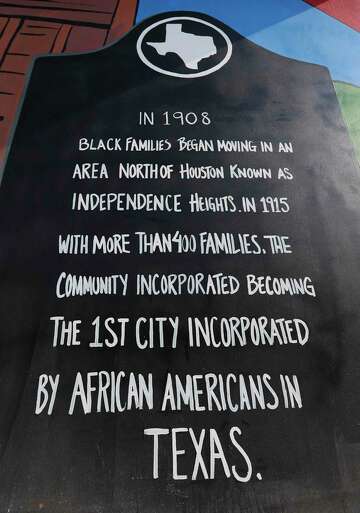 IN 1908
BLACK FAMILIES BEGAN MOVING IN AN
AREA NORTH OF HOUSTON KNOWN AS
INDEPENDENCE HEIGHTS. IN 1915
WITH MORE THAN 400 FAMILIES. THE
COMMUNITY INCORPORATED BECOMING
THE 1ST CITY INCORPORATED
BY AFRICAN AMERICANS IN
TEXAS.